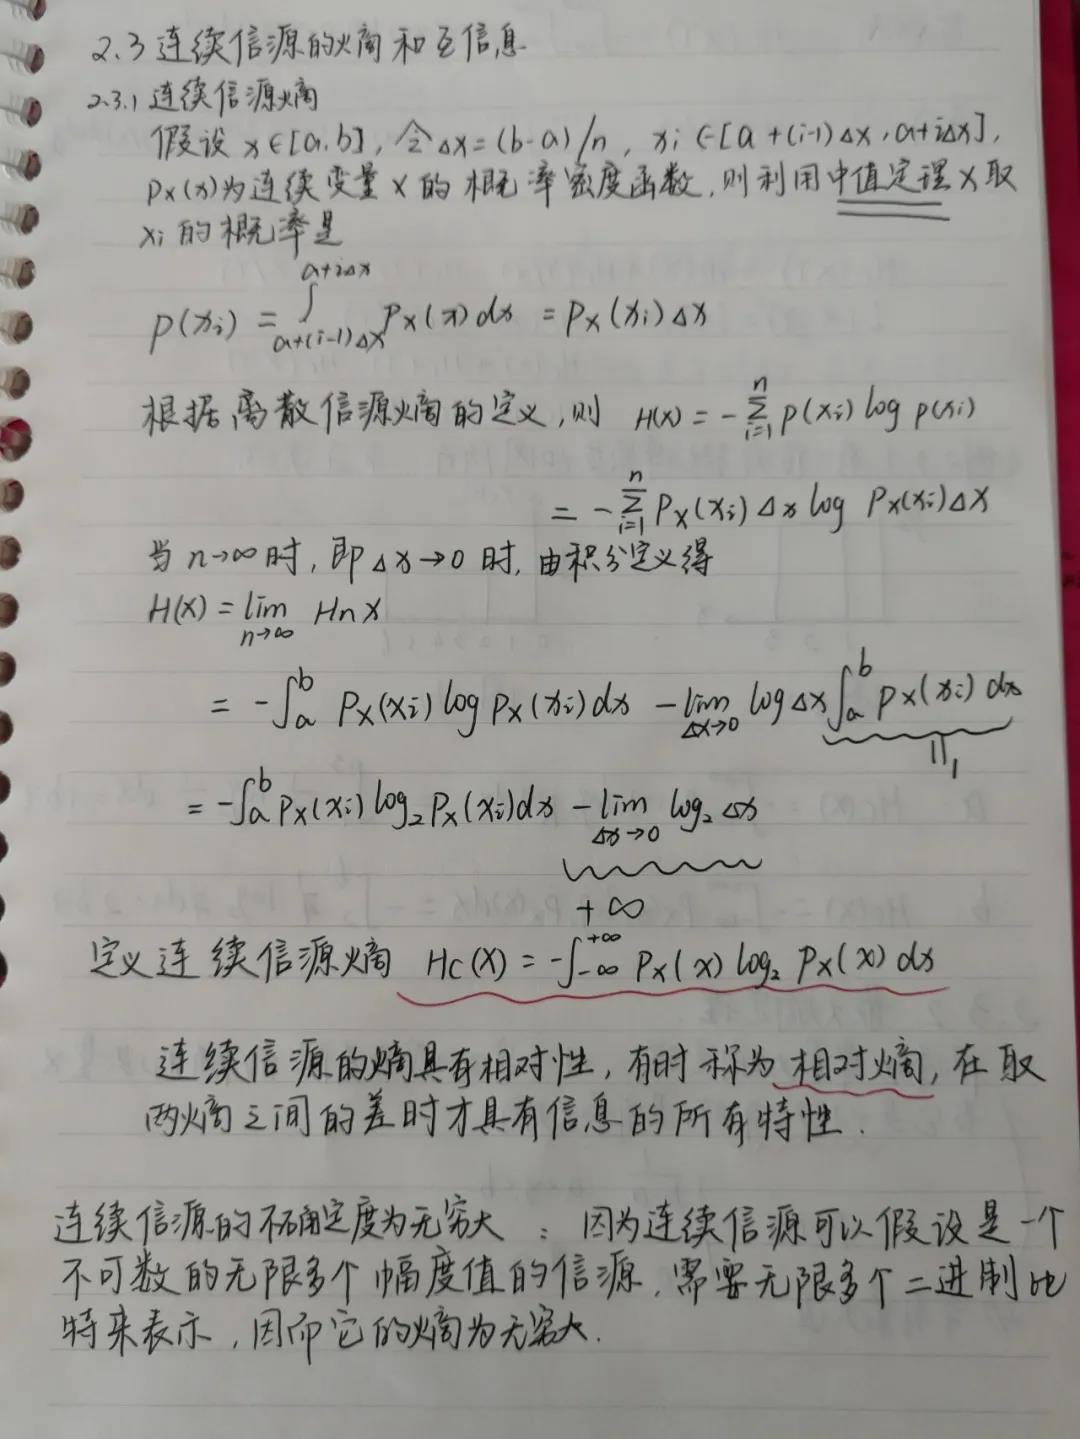 2.3 连续信源的熵和互信息
2.3.1 连续信源熵
假设 x∈[a,b], 令Δx=(b-a)/n, xi∈[a+(i-1)Δx, a+iΔx],
Px(x)为连续变量X的概率密度函数,则利用中值定理X取
xi的概率是
P(xi) = ∫_{a+(i-1)Δx}^{a+iΔx} Px(x)dx = Px(xi)Δx
根据离散信源熵的定义,则 H(X) = -∑_{i=1}^{n} P(xi) log P(xi)
= -∑_{i=1}^{n} Px(xi)Δx log Px(xi)Δx
当 n→∞时, 即Δx→0时, 由积分定义得
H(X) = lim_{n→∞} HnX
= -∫_a^b Px(xi) log Px(xi)dx - lim_{Δx→0} log Δx ∫_a^b Px(xi) dx
=1
= -∫_a^b Px(xi) log₂ Px(xi)dx - lim_{Δx→0} log₂ Δx
+∞
定义连续信源熵 Hc(X) = -∫_{-∞}^{+∞} Px(x) log₂ Px(x) dx
连续信源的熵具有相对性,有时称为相对熵,在取
两熵之间的差时才具有信息的所有特性.
连续信源的不确定度为无穷大 : 因为连续信源可以假设是一个
不可数的无限多个幅度值的信源,需要无限多个二进制比
特来表示,因而它的熵为无穷大.